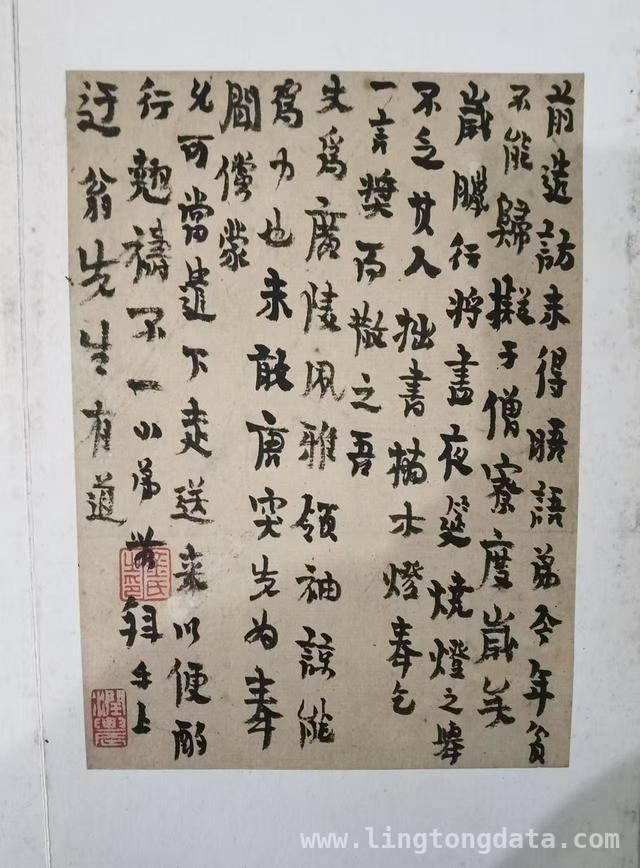 前造訪未得晤語弟今年貧
不能歸擬于僧寮度歲矣
歲臘行將盡夜筵燒燈之舉
不乏其人拙書楠木燈奉乞
一言獎而散之吾
丈爲廣陵風雅領袖諒能
爲力也未敢唐突先为奉
聞儻蒙
允可當遣下走送來以便酌
行翹禱不一小弟農拜手上
迂翁先生有道
www.lingtongdata.com